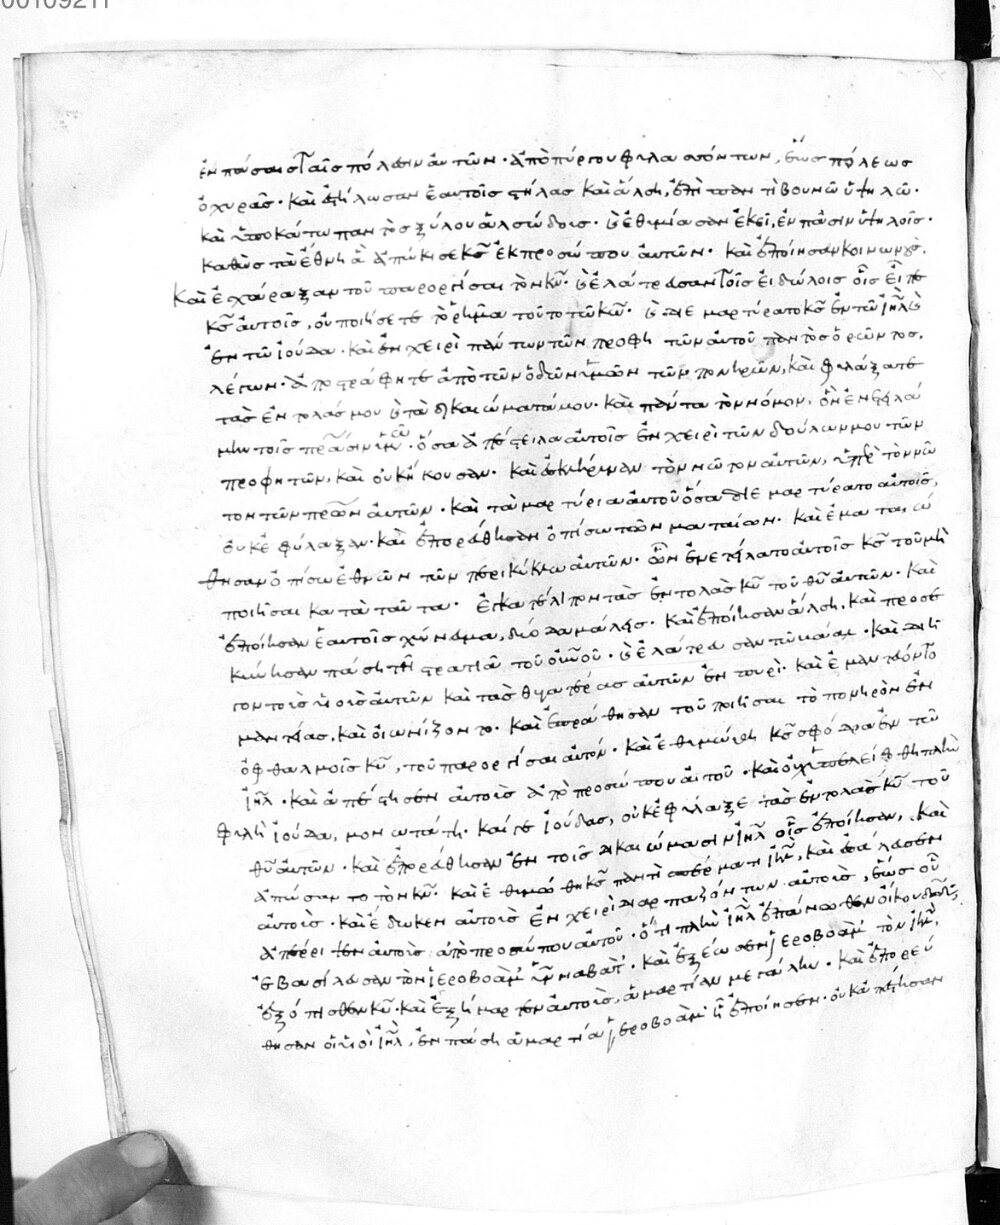 00109211
ἐν πάσαις ταῖς πόλεσιν αὐτῶν· ἀπὸ πύργου φυλασσόντων, ἕως πόλεως
ὀχυρᾶς· καὶ ἐστήλωσαν ἑαυτοῖς στήλας καὶ ἄλση, ἐπὶ παντὶ βουνῶ ὑψηλῶ·
καὶ ὑποκάτω παντὸς ξύλου ἀλσώδους· καὶ ἐθυμίασαν ἐκεῖ, ἐν πᾶσιν ὑψηλοῖς·
καθὼς τὰ ἔθνη ἃ ἀπώκισε κς ἐκ προσώπου αὐτῶν· καὶ ἐποίησαν κοινωνοὺς,
καὶ ἐχάραξαν τοῦ παροργίσαι τὸν κν· καὶ ἐλάτρευσαν τοῖς εἰδώλοις οἷς εἶπε
κς αὐτοῖς, οὐ ποιήσετε τὸ ῥῆμα τοῦτο τῶ κω· καὶ διεμαρτύρατο κς ἐν τῶ ιηλ καὶ
ἐν τῶ ἰούδα· καὶ ἐν χειρὶ πάντων τῶν προφητῶν αὐτοῦ παντὸς ὁρῶντος,
λέγων· ἀποστράφητε ἀπὸ τῶν ὁδῶν ὑμῶν τῶν πονηρῶν, καὶ φυλάξατε
τὰς ἐντολάς μου καὶ τὰ δικαιώματά μου· καὶ πάντα τὸν νόμον, ὃν ἐνετειλά
μην τοῖς πρασιν ὑμῶν· ὅσα ἀπέστειλα αὐτοῖς ἐν χειρὶ τῶν δούλων μου τῶν
προφητῶν, καὶ οὐκ ἤκουσαν· καὶ ἐσκλήρυναν τὸν νῶτον αὐτῶν, ὑπὲρ τὸν νῶ
τον τῶν πρων αὐτῶν· καὶ τὰ μαρτύρια αὐτοῦ ὅσα διεμαρτύρατο αὐτοῖς,
οὐκ ἐφύλαξαν· καὶ ἐπορεύθησαν ὀπίσω τῶν ματαίων· καὶ ἐματαιώ
θησαν ὀπίσω ἐθνῶν τῶν περικύκλω αὐτῶν· ὧν ἐνετείλατο αὐτοῖς κς τοῦ μὴ
ποιῆσαι κατὰ ταῦτα· ἐγκατέλιπον τὰς ἐντολὰς κυ τοῦ θυ αὐτῶν· καὶ
ἐποίησαν ἑαυτοῖς χώνευμα, δύο δαμάλεις· καὶ ἐποίησαν ἄλση, καὶ προσε
κύνησαν πάση τῆ στρατιᾶ τοῦ οὐνου· καὶ ἐλάτρευσαν τῶ βάαλ· καὶ διῆ
γον τοὺς υἱοὺς αὐτῶν καὶ τὰς θυγατέρας αὐτῶν ἐν πυρί· καὶ ἐμαντεύοντο
μαντείας, καὶ οἰωνίζοντο· καὶ ἐπράθησαν τοῦ ποιῆσαι τὸ πονηρὸν ἐν
ὀφθαλμοῖς κυ, τοῦ παροργίσαι αὐτόν· καὶ ἐθυμώθη κς σφόδρα ἐν τῶ
ιηλ· καὶ ἀπέστησεν αὐτοὺς ἀπὸ προσώπου αὐτοῦ· καὶ οὐχ ὑπελείφθη πλὴν
φυλὴ ἰούδα, μονωτάτη· καί γε ἰούδας, οὐκ ἐφύλαξε τὰς ἐντολὰς κυ τοῦ
θυ αὐτῶν· καὶ ἐπορεύθησαν ἐν τοῖς δικαιώμασιν ιηλ οἷς ἐποίησαν, καὶ
ἀπώσαντο τὸν κν· καὶ ἐθυμώθη κς παντὶ σπέρματι ιηλ, καὶ ἐσάλευσεν
αὐτούς· καὶ ἔδωκεν αὐτοὺς ἐν χειρὶ διαρπαζόντων αὐτοὺς, ἕως οὗ
ἀπέρριψεν αὐτοὺς ἀπὸ προσώπου αὐτοῦ· ὅτι πλὴν ιηλ ἐπάνωθεν οἴκου δαδ,
ἐβασίλευσαν τὸν ἱεροβοὰμ υἱὸν ναβάτ· καὶ ἐξέωσεν ἱεροβοὰμ τὸν ιηλ,
ἐξόπισθεν κυ· καὶ ἐξήμαρτεν αὐτοὺς, ἁμαρτίαν μεγάλην· καὶ ἐπορεύ
θησαν οἱ υἱοὶ ιηλ, ἐν πάση ἁμαρτία ἱεροβοὰμ ἧ ἐποίησεν· οὐκ ἀπέστησαν